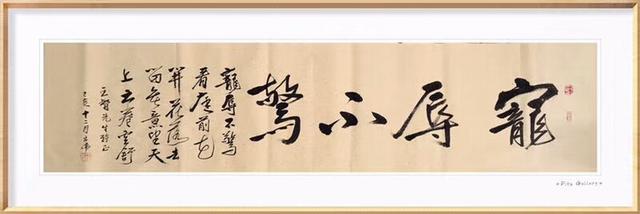 寵辱不驚
寵辱不驚
看庭前花
開花落去
留無意望天
上云卷雲舒
先生雅正
己亥十二月
Gallery